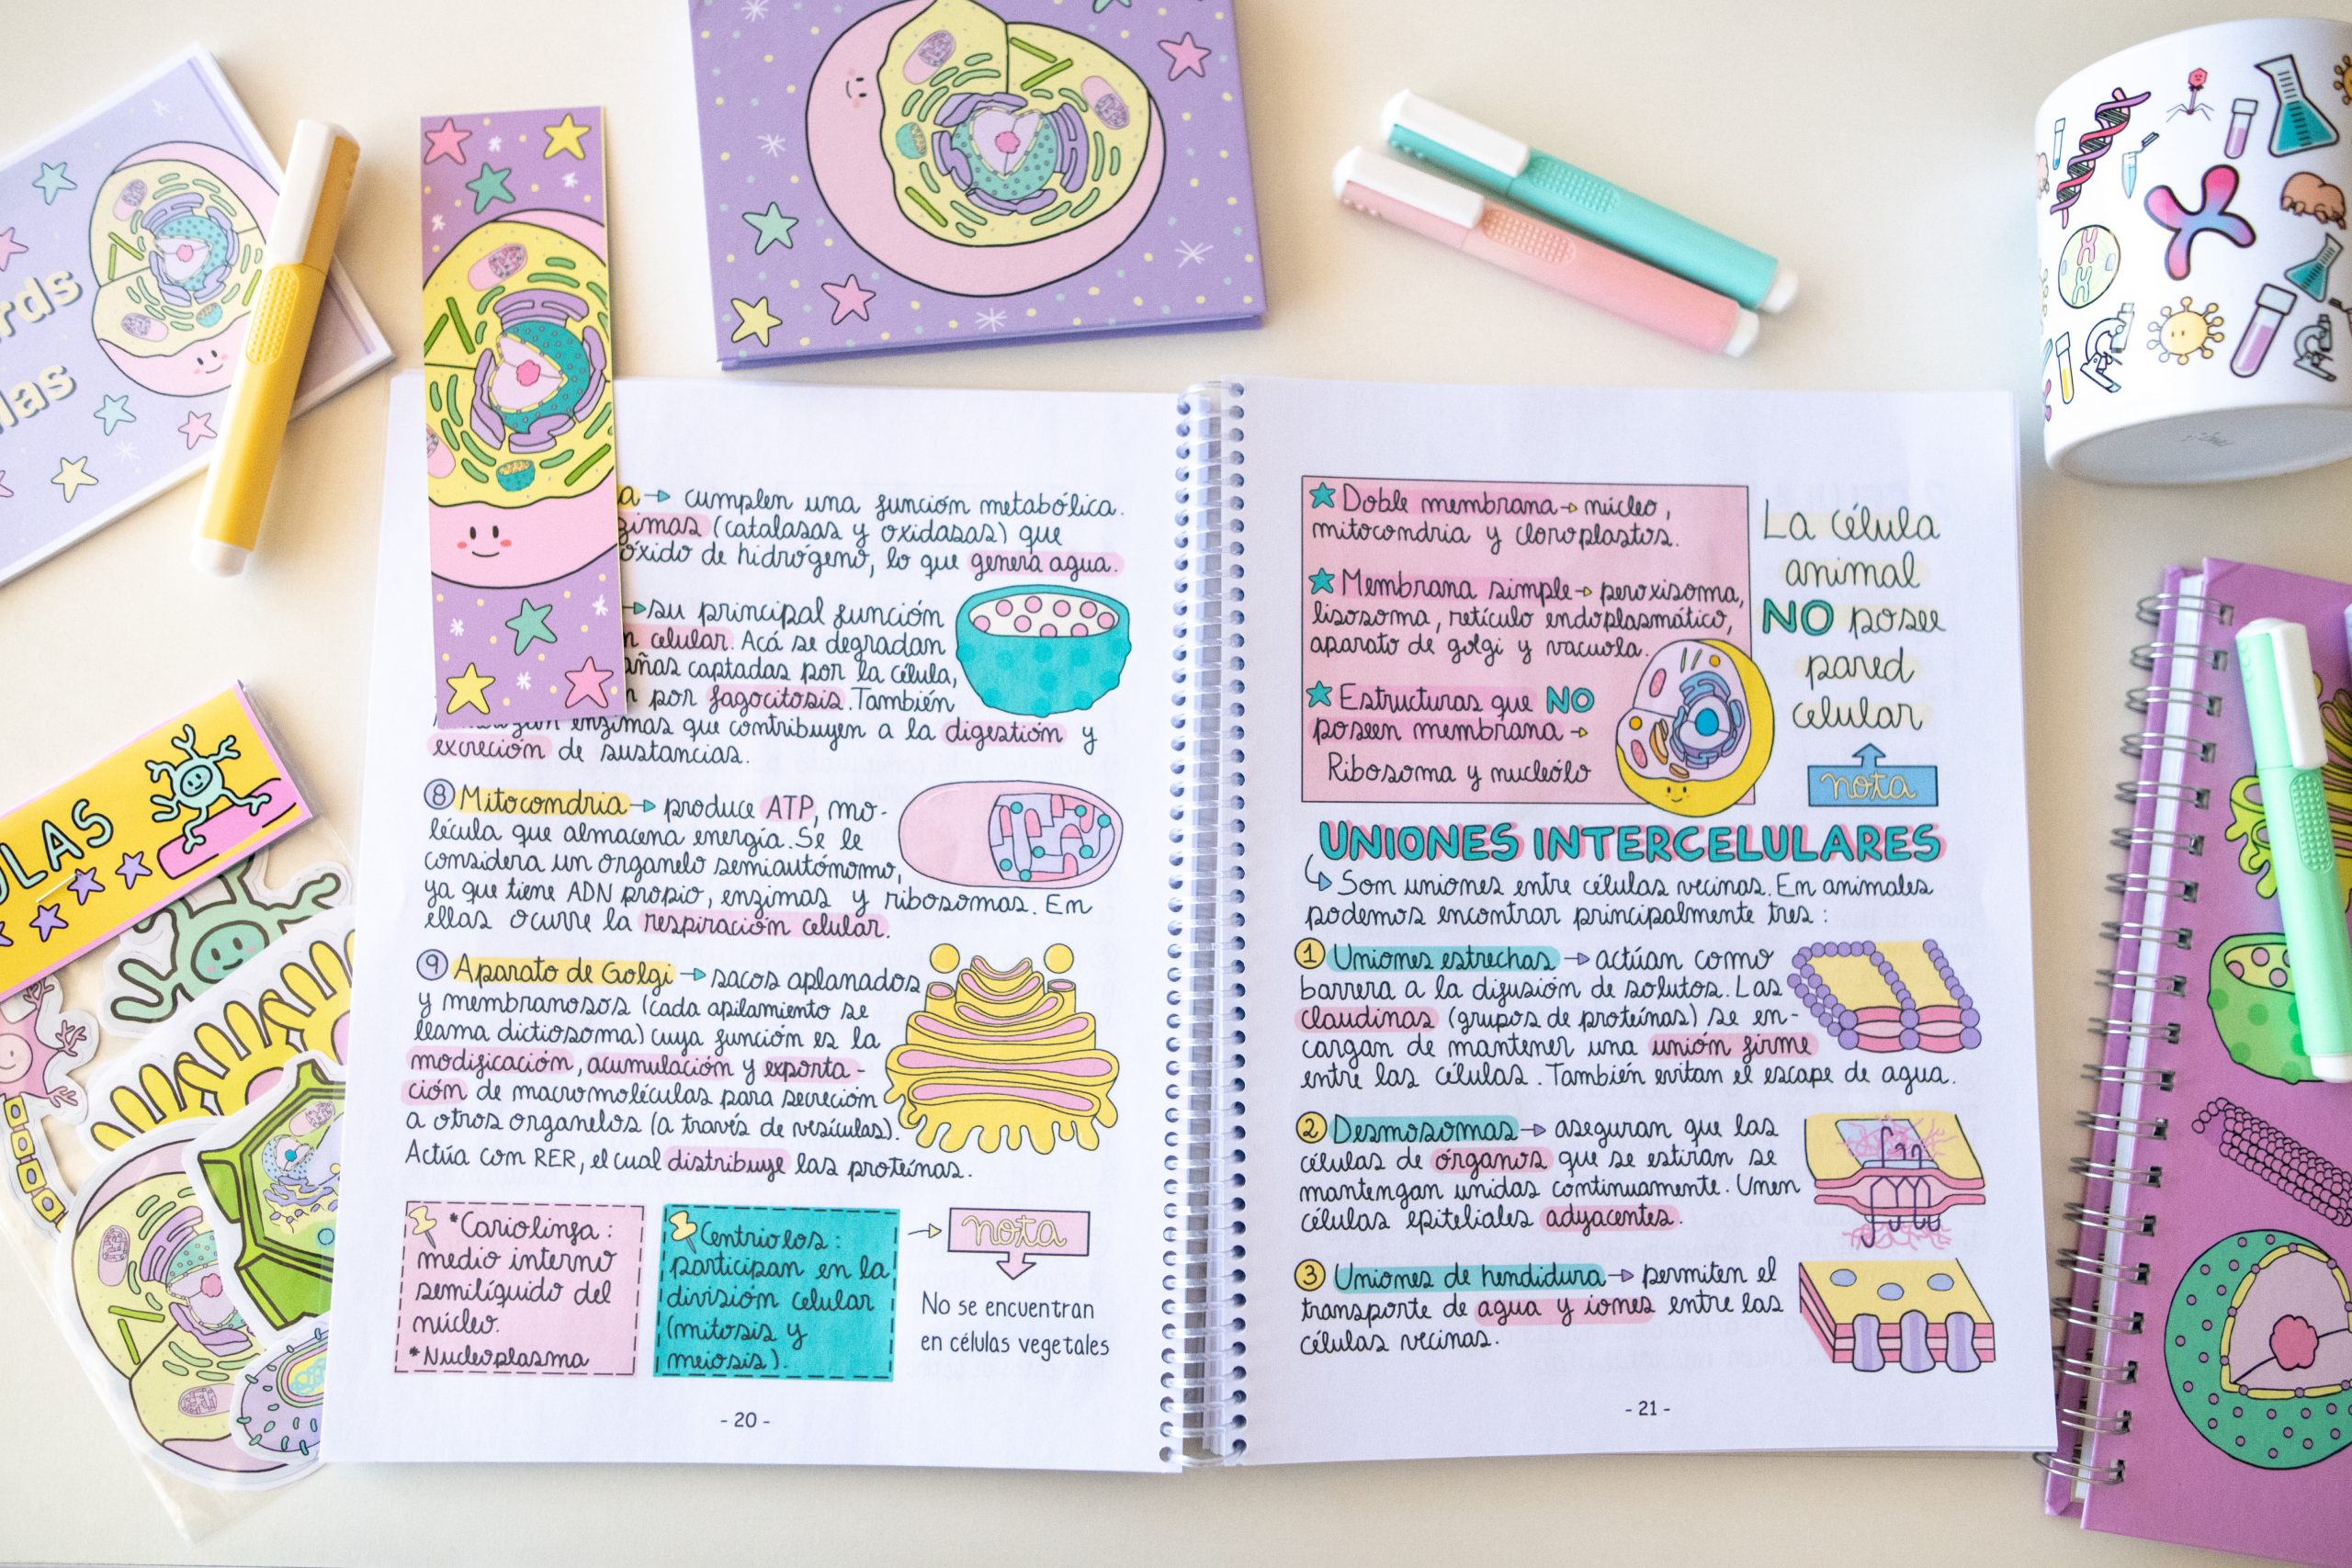 rds
las
ULAS
a→ cumplen una función metabólica.
zimas (catalasas y oxidasas) que
óxido de hidrógeno, lo que genera agua.
→su principal función
n celular. Acá se degradan
añas captadas por la célula,
n por fagocitosis. También
enzimas que contribuyen a la digestión y
excreción de sustancias.
8 Mitocondria→ produce ATP, mo-
lécula que almacena energía. Se le
considera un organelo semiautónomo,
ya que tiene ADN propio, enzimas y ribosomas. En
ellas ocurre la respiración celular.
9 Aparato de Golgi→sacos aplanados
y membranosos (cada apilamiento se
llama dictiosoma) cuya función es la
modificación, acumulación y exporta-
ción de macromoléculas para secreción
a otros organelos (a través de vesículas).
Actúa con RER, el cual distribuye las proteínas.
*Cariolinfa:
medio interno
semilíquido del
núcleo.
*Nucleoplasma
Centriolos:
participan en la
división celular
(mitosis y
meiosis).
→ nota
No se encuentran
en células vegetales
- 20 -
★ Doble membrana→ núcleo,
mitocondria y cloroplastos.
★ Membrana simple→ peroxisoma,
lisosoma, retículo endoplasmático,
aparato de golgi y vacuola.
★ Estructuras que NO
poseen membrana→
Ribosoma y nucleólo
La célula
animal
NO posee
pared
celular
nota
UNIONES INTERCELULARES
Son uniones entre células vecinas. En animales
podemos encontrar principalmente tres:
1 Uniones estrechas→ actúan como
barrera a la difusión de solutos. Las
claudinas (grupos de proteínas) se en-
cargan de mantener una unión firme
entre las células. También evitan el escape de agua.
2 Desmosomas→ aseguran que las
células de órganos que se estiran se
mantengan unidas continuamente. Unen
células epiteliales adyacentes.
3 Uniones de hendidura→ permiten el
transporte de agua y iones entre las
células vecinas.
- 21 -